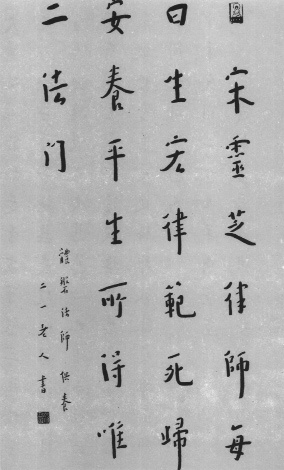 宋靈芝律師每
曰生宏律範死歸
安養平生所得唯
二法门
法師供養
二一老人書